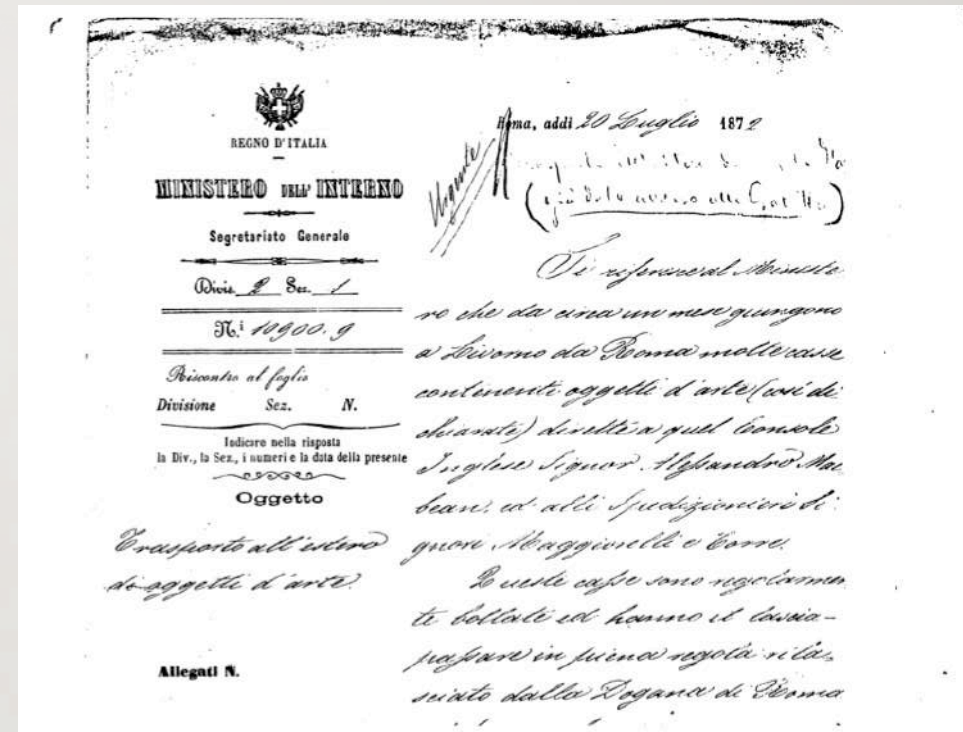 REGNO D'ITALIA
MINISTERO DELL' INTERNO
Segretariato Generale
Divis. 2 Sez. 1
N.i 10900.9
Riscontro al foglio
Divisione Sez. N.
Indicare nella risposta
la Div., la Sez., i numeri e la data della presente
Oggetto
Trasporto all'estero
di oggetti d'arte.
Allegati N.
Roma, addì 20 Luglio 1872
Urgente
(già dato avviso alla
Si riferisce al Ministe
ro che da circa un mese giungono
a Livorno da Roma molte casse
contenenti oggetti d'arte (così di
chiarati) dirette a quel Console
Inglese Signor Alessandro Mac
bean, ed alli Spedizionieri Si
gnori Maggiorelli e Torre.
Queste casse sono regolarmen
te bollate ed hanno il lascia-
passare in piena regola rila
sciato dalla Dogana di Roma